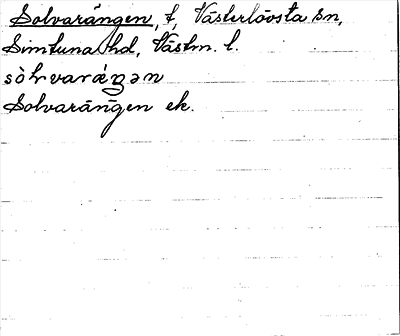 Solvarängen, t, Västerlövsta sn,
Simtuna hd, Västm. l.
sòlvaráŋən
Solvarängen ek.